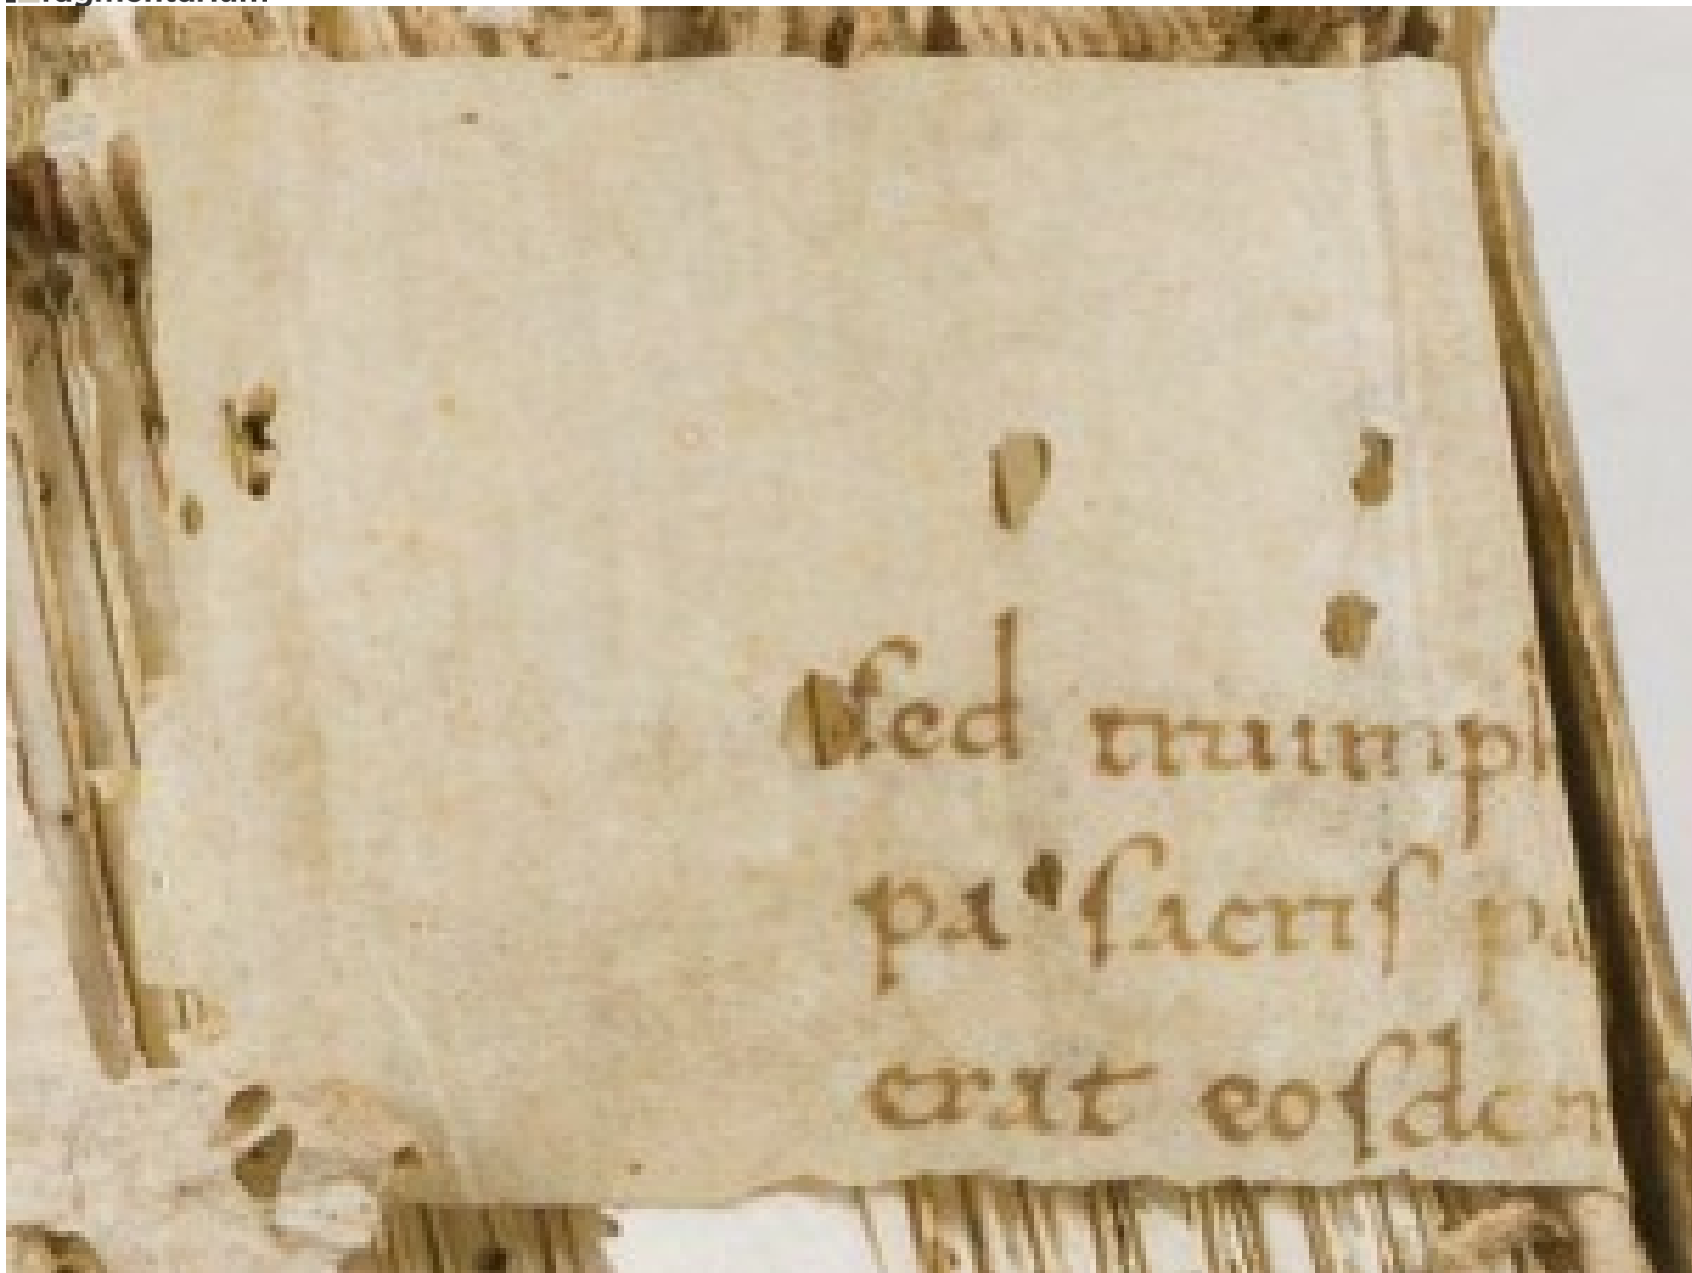 ſed triumph
pa ſacriſ pa
erat eoſdem